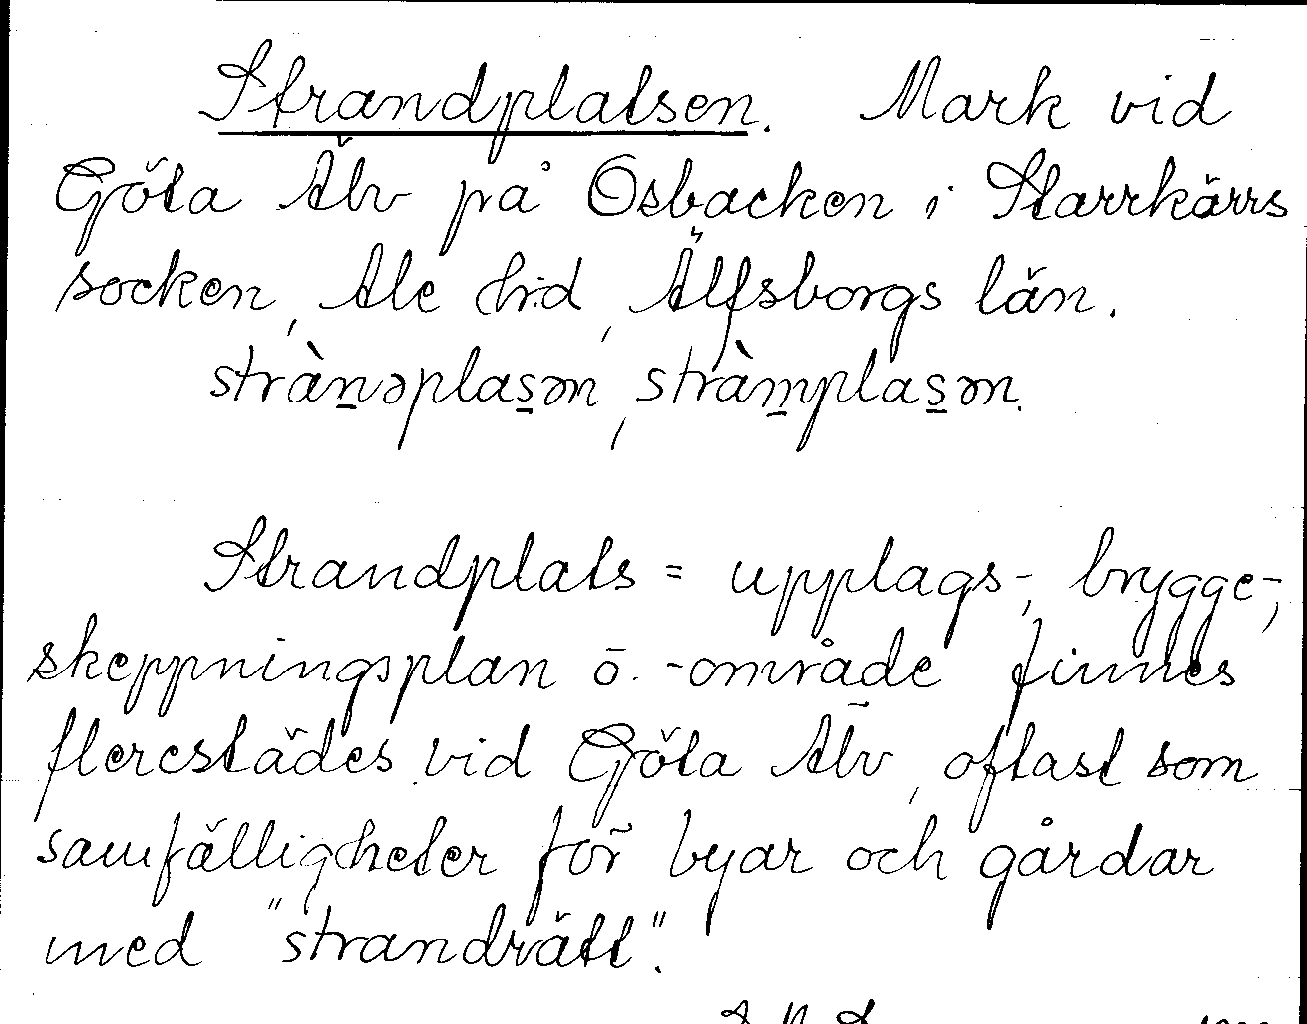 Strandplatsen. Mark vid
Göta Älv på Osbacken i Starrkärrs
socken, Ale hd, Älfsborgs län.
stràn̲əplas̲ən, stràm̲plas̲ən.
Strandplats = upplags-, brygge-,
skeppningsplan o. -område finnes
flerestädes vid Göta Älv, oftast som
samfälligheter för byar och gårdar
med "strandrätt".